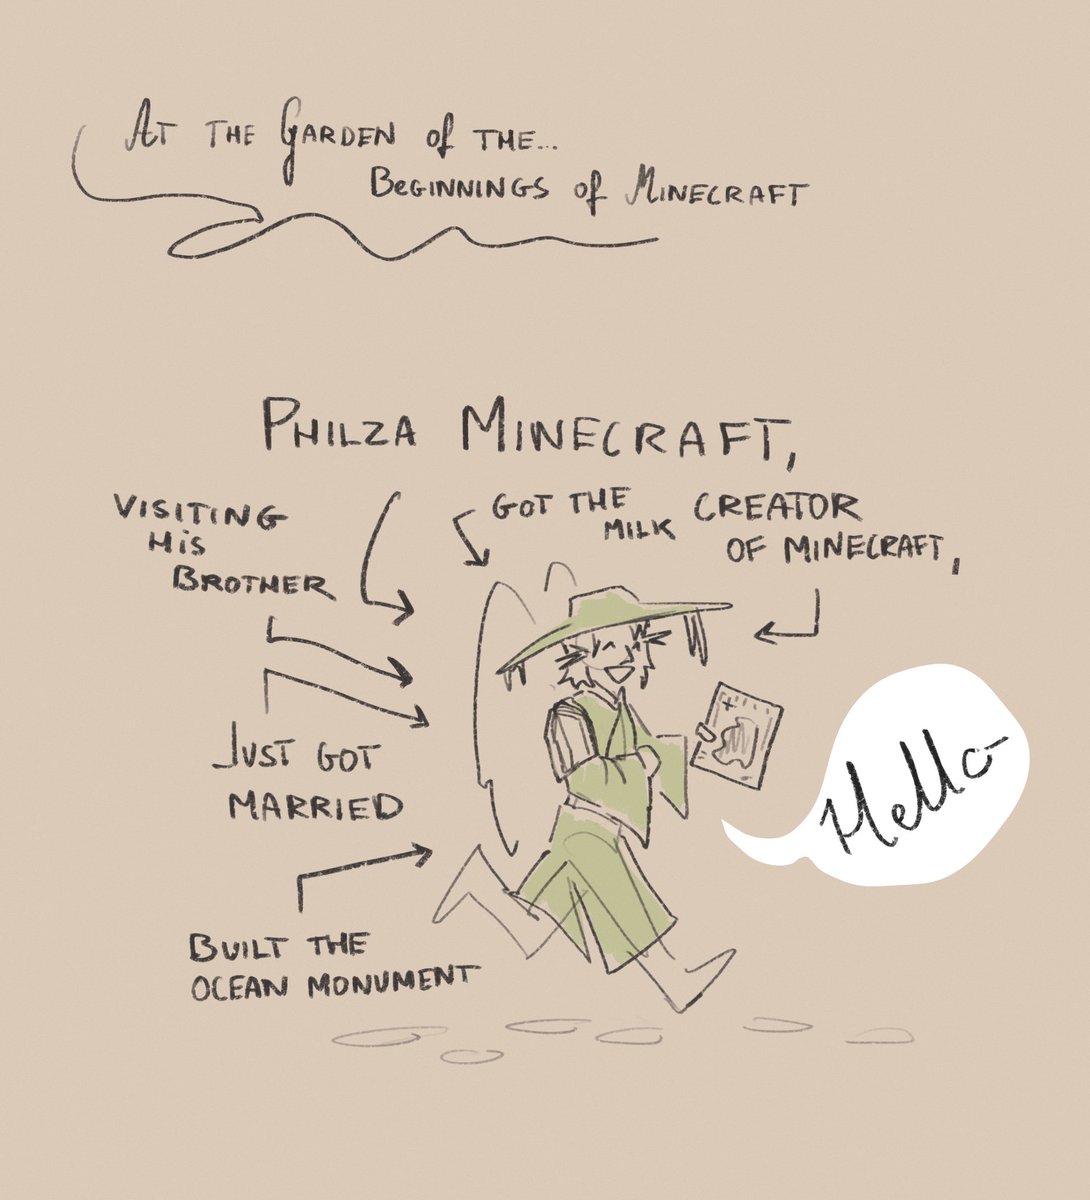 At the Garden of the...
Beginnings of Minecraft
Philza Minecraft,
Visiting
His
Brother
Got the
Milk
Creator
of Minecraft,
Just got
married
Built the
ocean monument
Hello-